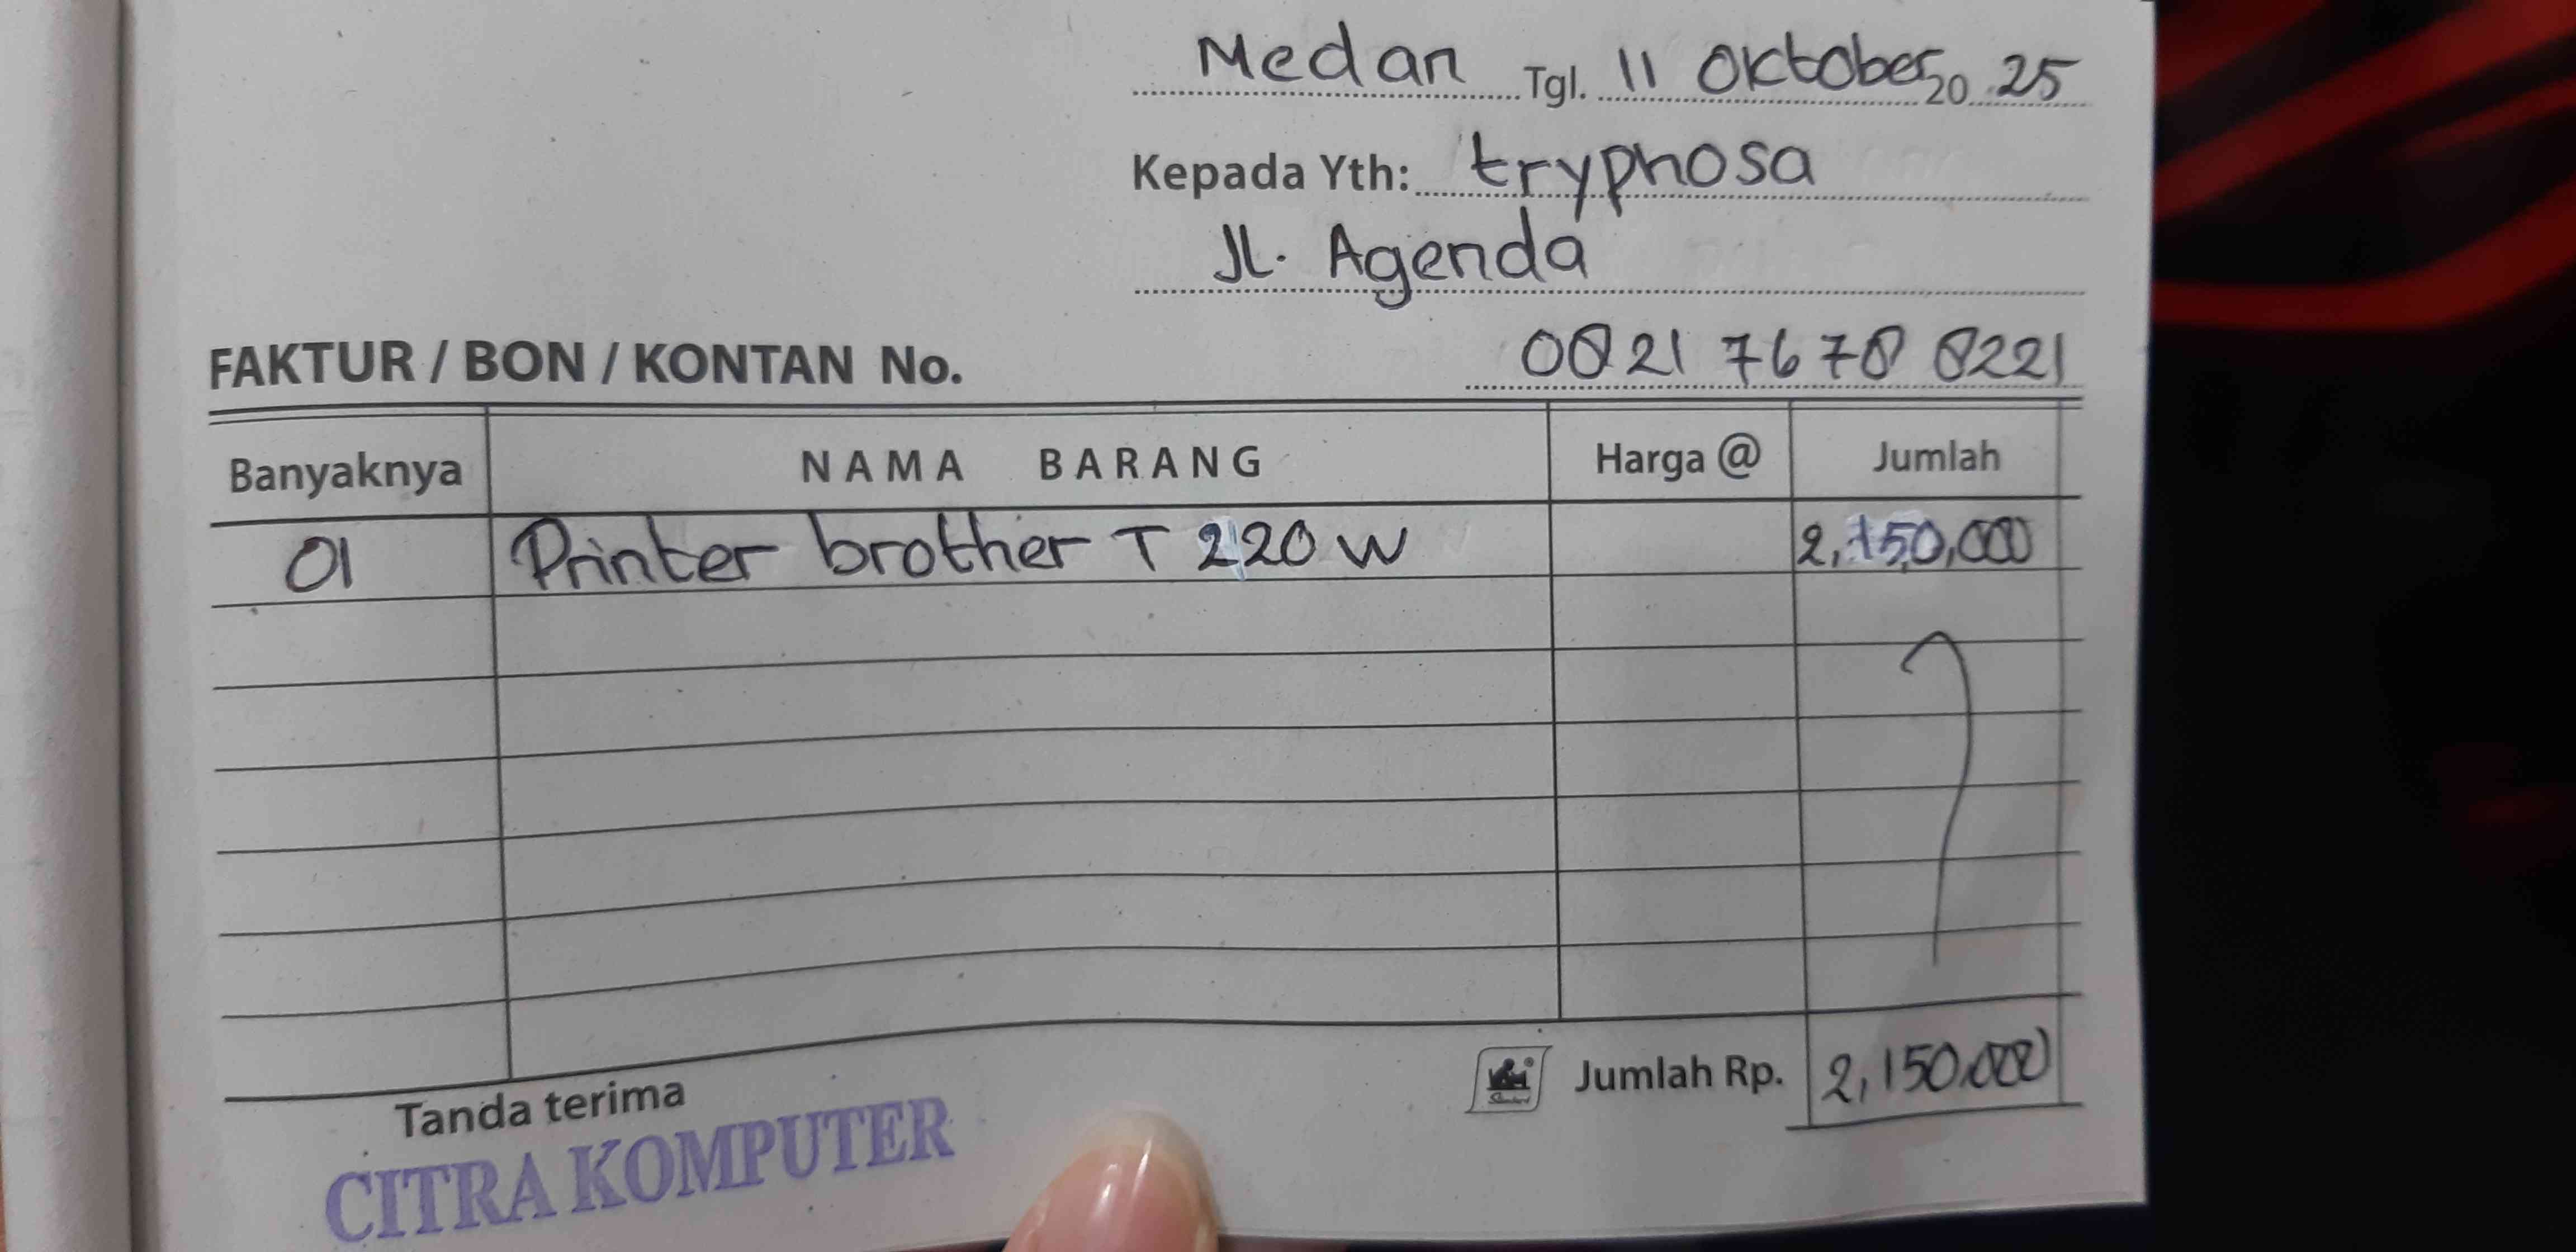 Medan Tgl. 11 Oktober 20 25
Kepada Yth: tryphosa
Jl. Agenda
FAKTUR / BON / KONTAN No. 0821 7678 8221
Banyaknya NAMA BARANG Harga @ Jumlah
01 Printer brother T 220 W 2,150,000
Jumlah Rp. 2,150.000
Tanda terima
CITRA KOMPUTER